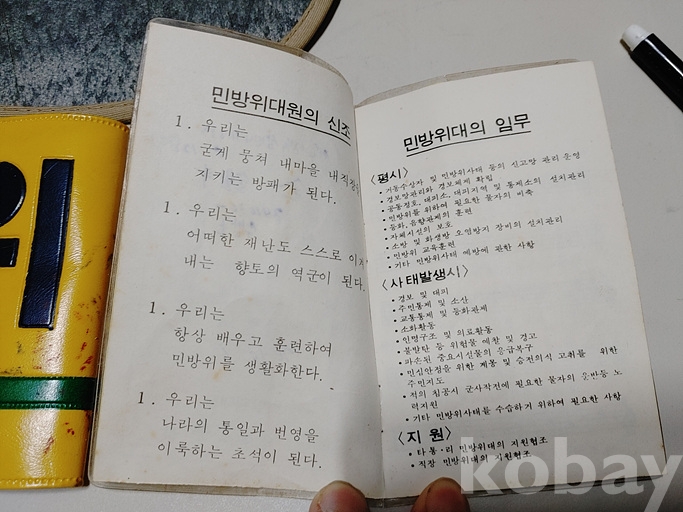 위
민방위대원의 신조
1. 우리는
굳게 뭉쳐 내마을 내직장을
지키는 방패가 된다.
1. 우리는
어떠한 재난도 스스로 이겨
내는 향토의 역군이 된다.
1. 우리는
항상 배우고 훈련하여
민방위를 생활화한다.
1. 우리는
나라의 통일과 번영을
이룩하는 초석이 된다.
민방위대의 임무
<평시>
• 거동수상자 및 민방위사태 등의 신고망 관리 운영
• 경보망관리와 경보체제 확립
• 공동정호, 대피소, 대피지역 및 통제소의 설치관리
• 민방위를 위하여 필요한 물자의 비축
• 등화, 음향관제의 훈련
• 자체시설의 보호
• 소방 및 화생방 오염방지 장비의 설치관리
• 민방위 교육훈련
• 기타 민방위사태 예방에 관한 사항
<사태발생시>
• 경보 및 대피
• 주민통제 및 소산
• 교통통제 및 등화관제
• 소화활동
• 인명구조 및 의료활동
• 불발탄 등 위험물 예찰 및 경고
• 파손된 중요시설물의 응급복구
• 민심안정을 위한 계몽 및 승전의식 고취를 위한
주민지도
• 적의 침공시 군사작전에 필요한 물자의 운반등 노
력지원
• 기타 민방위사태를 수습하기 위하여 필요한 사항
<지원>
• 타 통·리 민방위대의 지원협조
• 직장 민방위대의 지원협조
kobay